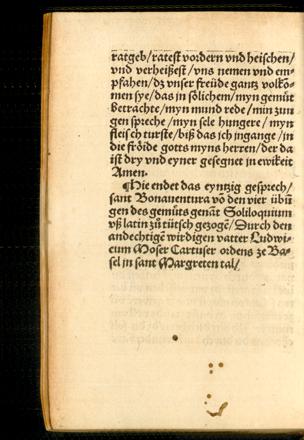 ratgeb/ratest vordern vnd heischen/
vnd verheißest/vns nemen vnd em-
pfahen/dz vnser freüde gantz volkõ-
men sye/das in sölichem/myn gemüt
betrachte/myn mund rede/min zun
gen spreche/myn sele hungere/myn
fleisch turste/biß das ich ingange/in
die fröide gotts myns herren/der da
ist dry vnd eyner gesegnet in ewikeit
Amen.
¶Hie endet das eyntzig gesprech/
sant Bonauentura võ den vier übũ
gen des gemüts genãt Soliloquium
vß latin zů tütsch gezogẽ/Durch den
andechtigẽ wirdigen vatter Ludwi-
cum Moser Cartuser ordens ze Ba-
sel in sant Margreten tal/